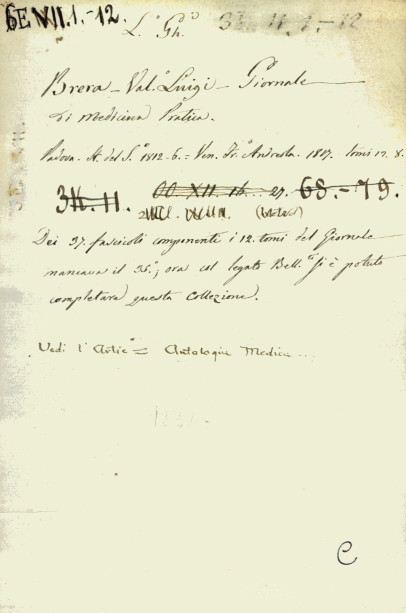 6E VII.1.-12. L.° Gh.° 3H. 11. 1.-12
Brera - Val.° Luigi - Giornale
di Medicina Pratica.
Padova. St. del S.° 1812. 6. = Ven. Fr.° Andreola. 1817. tomi 12. 8.
3H. 11. 00 XII. 16... 27. 68.-79.
Dei 37. fascicoli componente i 12. tomi del Giornale
mancava il 36.°; ora col legato Bell.ti si è potuto
completare questa Collezione.
Vedi l'Artic° = Antologia Medica ...
C